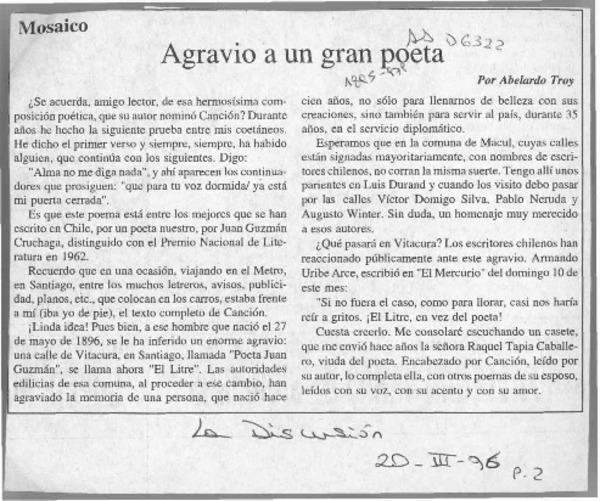 Mosaico
AD D6322
Agravio a un gran poeta
Por Abelardo Troy
¿Se acuerda, amigo lector, de esa hermosísima com-
posición poética, que su autor nominó Canción? Durante
años he hecho la siguiente prueba entre mis coetáneos.
He dicho el primer verso y siempre, siempre, ha habido
alguien, que continúa con los siguientes. Digo:
"Alma no me diga nada", y ahí aparecen los continua-
dores que prosiguen: "que para tu voz dormida/ ya está
mi puerta cerrada".
Es que este poema está entre los mejores que se han
escrito en Chile, por un poeta nuestro, por Juan Guzmán
Cruchaga, distinguido con el Premio Nacional de Lite-
ratura en 1962.
Recuerdo que en una ocasión, viajando en el Metro,
en Santiago, entre los muchos letreros, avisos, publici-
dad, planos, etc., que colocan en los carros, estaba frente
a mí (iba yo de pie), el texto completo de Canción.
¡Linda idea! Pues bien, a ese hombre que nació el 27
de mayo de 1896, se le ha inferido un enorme agravio:
una calle de Vitacura, en Santiago, llamada "Poeta Juan
Guzmán", se llama ahora "El Litre". Las autoridades
edilicias de esa comuna, al proceder a ese cambio, han
agraviado la memoria de una persona, que nació hace
cien años, no sólo para llenarnos de belleza con sus
creaciones, sino también para servir al país, durante 35
años, en el servicio diplomático.
Esperamos que en la comuna de Macul, cuyas calles
están signadas mayoritariamente, con nombres de escri-
tores chilenos, no corran la misma suerte. Tengo allí unos
parientes en Luis Durand y cuando los visito debo pasar
por las calles Víctor Domigo Silva, Pablo Neruda y
Augusto Winter. Sin duda, un homenaje muy merecido
a esos autores.
¿Qué pasará en Vitacura? Los escritores chilenos han
reaccionado públicamente ante este agravio. Armando
Uribe Arce, escribió en "El Mercurio" del domingo 10 de
este mes:
"Si no fuera el caso, como para llorar, casi nos haría
reír a gritos. ¡El Litre, en vez del poeta!
Cuesta creerlo. Me consolaré escuchando un casete,
que me envió hace años la señora Raquel Tapia Caballe-
ro, viuda del poeta. Encabezado por Canción, leído por
su autor, lo completa ella, con otros poemas de su esposo,
leídos con su voz, con su acento y con su amor.
La Discusión
20-III-96 P.2